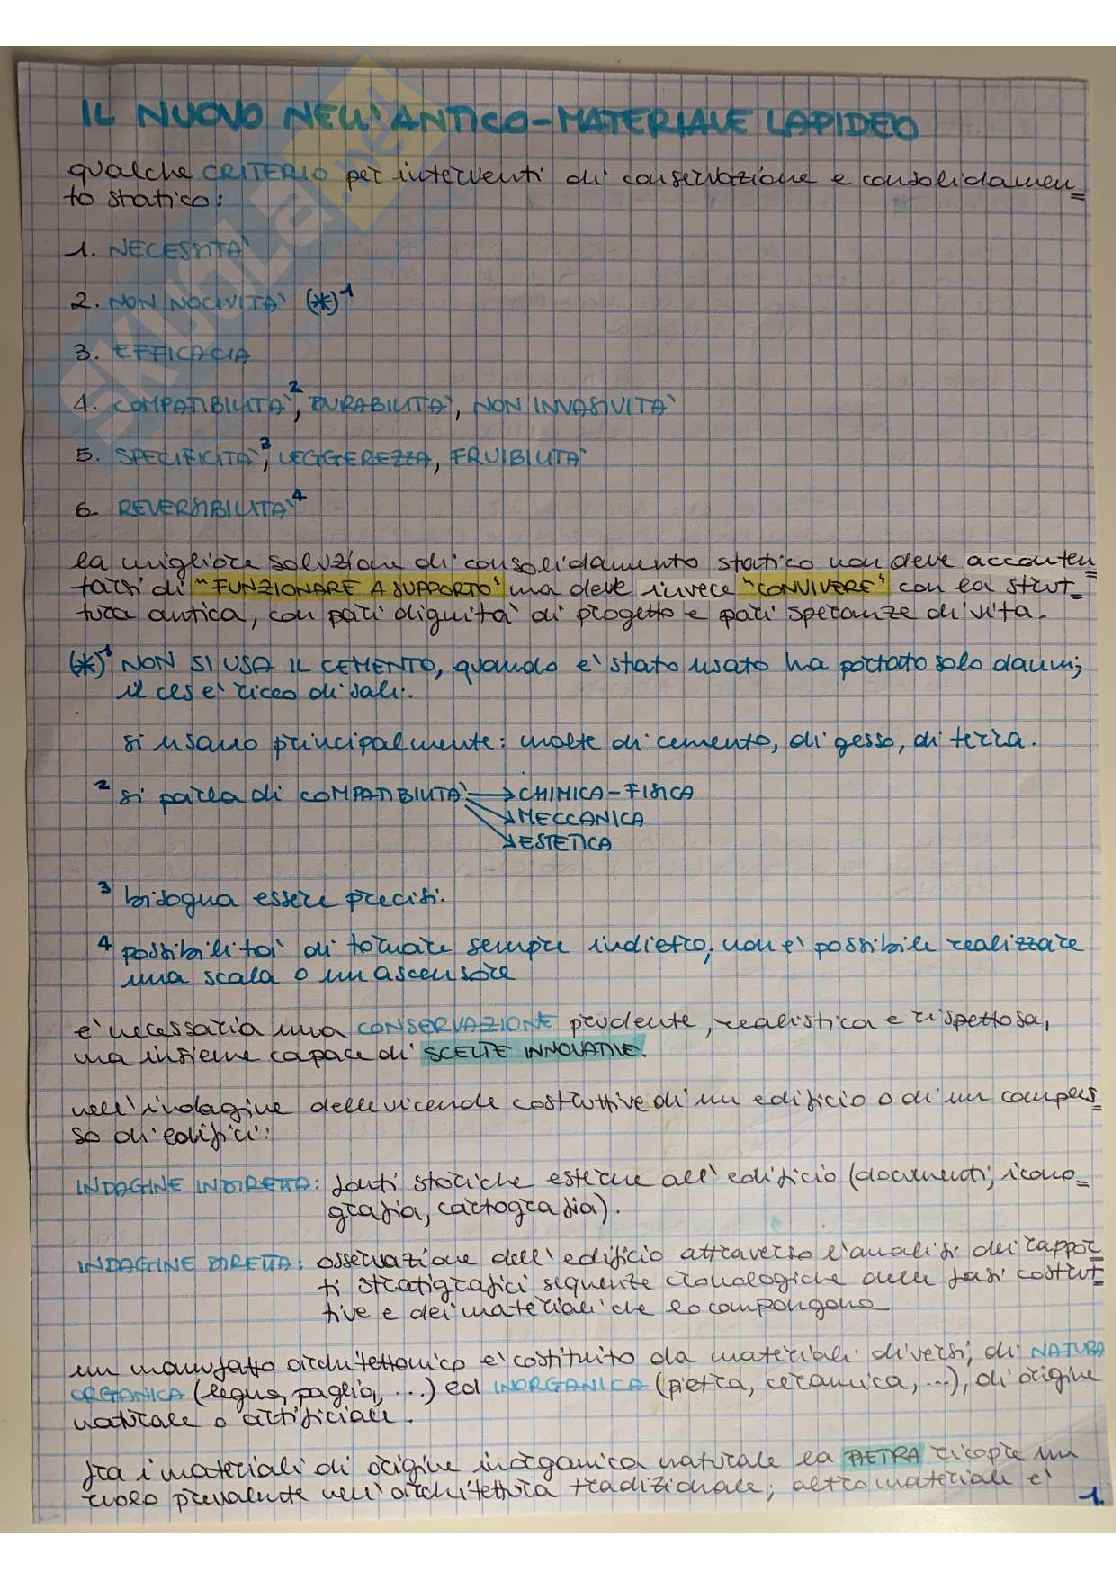 IL NUOVO NELL'ANTICO-MATERIALE LAPIDEO
qualche CRITERIO per interventi di conservazione e consolidamen=
to statico:
1. NECESSITA'
2. NON NOCIVITA' (*)1
3. EFFICACIA
4. COMPATIBILITA'2, DURABILITA', NON INVASIVITA'
5. SPECIFICITA'3, LEGGEREZZA, FRUIBILITA'
6. REVERSIBILITA'4
la migliore soluzione di consolidamento statico non deve acconten=
tarsi di "FUNZIONARE A SUPPORTO" ma deve invece "CONVIVERE" con la strut=
tura antica, con pari dignità di progetto e pari speranze di vita.
(*)1 NON SI USA IL CEMENTO, quando è stato usato ha portato solo danni;
il cls è ricco di sali.
si usano principalmente: malte di cemento, di gesso, di terra.
2 si parla di COMPATIBILITA' → CHIMICA-FISICA
→ MECCANICA
→ ESTETICA
3 bisogna essere precisi.
4 possibilità di tornare sempre indietro; non è possibile realizzare
una scala o un ascensore
è necessaria una CONSERVAZIONE prudente, realistica e rispettosa,
ma insieme capace di SCELTE INNOVATIVE.
nell'indagine delle vicende costruttive di un edificio o di un comples=
so di edifici:
INDAGINE INDIRETTA: fonti storiche esterne all'edificio (documenti, icono=
grafia, cartografia).
INDAGINE DIRETTA: osservazione dell'edificio attraverso l'analisi dei rappor=
ti stratigrafici sequenze cronologiche delle fasi costrut=
tive e dei materiali che lo compongono
un manufatto architettonico è costituito da materiali diversi, di NATURA
ORGANICA (legno, paglia, ...) ed INORGANICA (pietra, ceramica, ...), di origine
naturale o artificiale.
fra i materiali di origine inorganica naturale la PIETRA ricopre un
ruolo prevalente nell'architettura tradizionale; altro materiale è
1.
SKUOLA.net